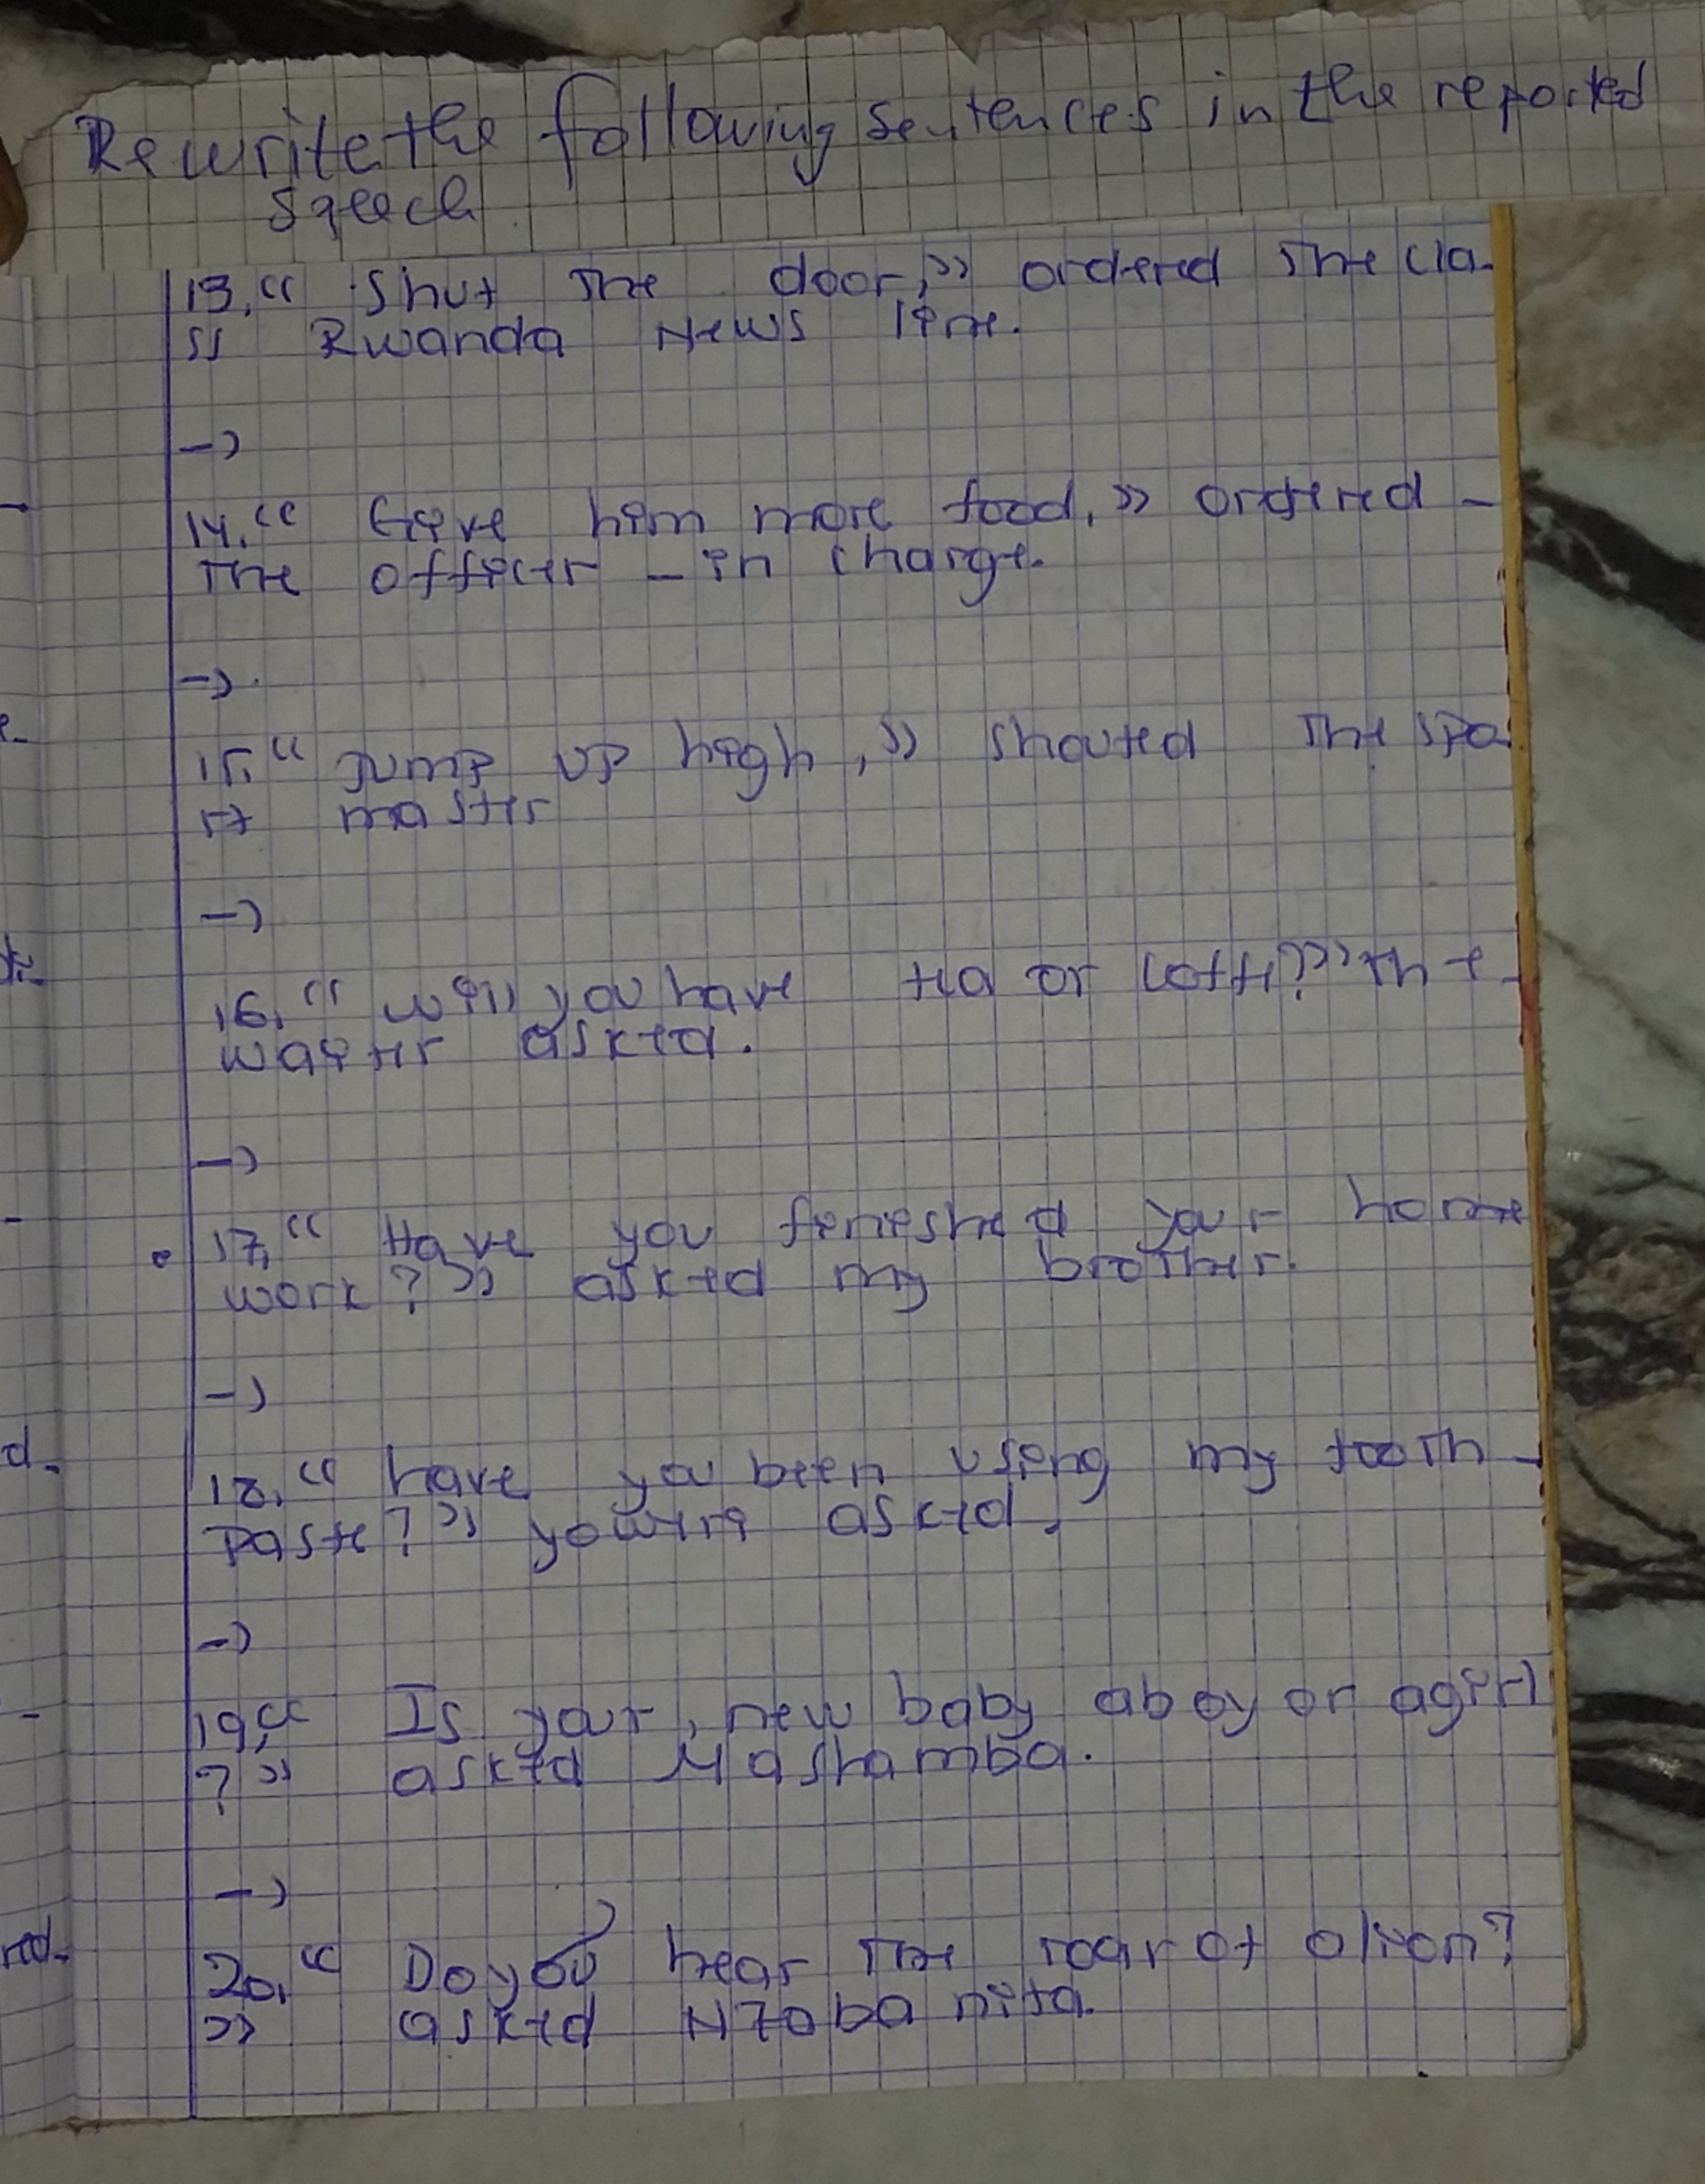 Rewrite the following sentences in the reported
speech
13, " Shut the door," ordered the cla-
ss Rwanda News line.
->
14, " Give him more food," ordered -
the officer - in charge.
->
15, " Jump up high," shouted the spo
rt master
->
16, " Will you have tea or coffe?" the -
waiter asked.
->
17, " Have you fineshed your home
work?" asked my brother.
->
18, " have you been using my tooth -
paste?" yoweri asked.
->
19, " Is your, new baby a boy or a girl
?" asked Mashamba.
->
20, " Do you hear the roar of a lion?
" asked Nzobanita.
e-
d-
red-